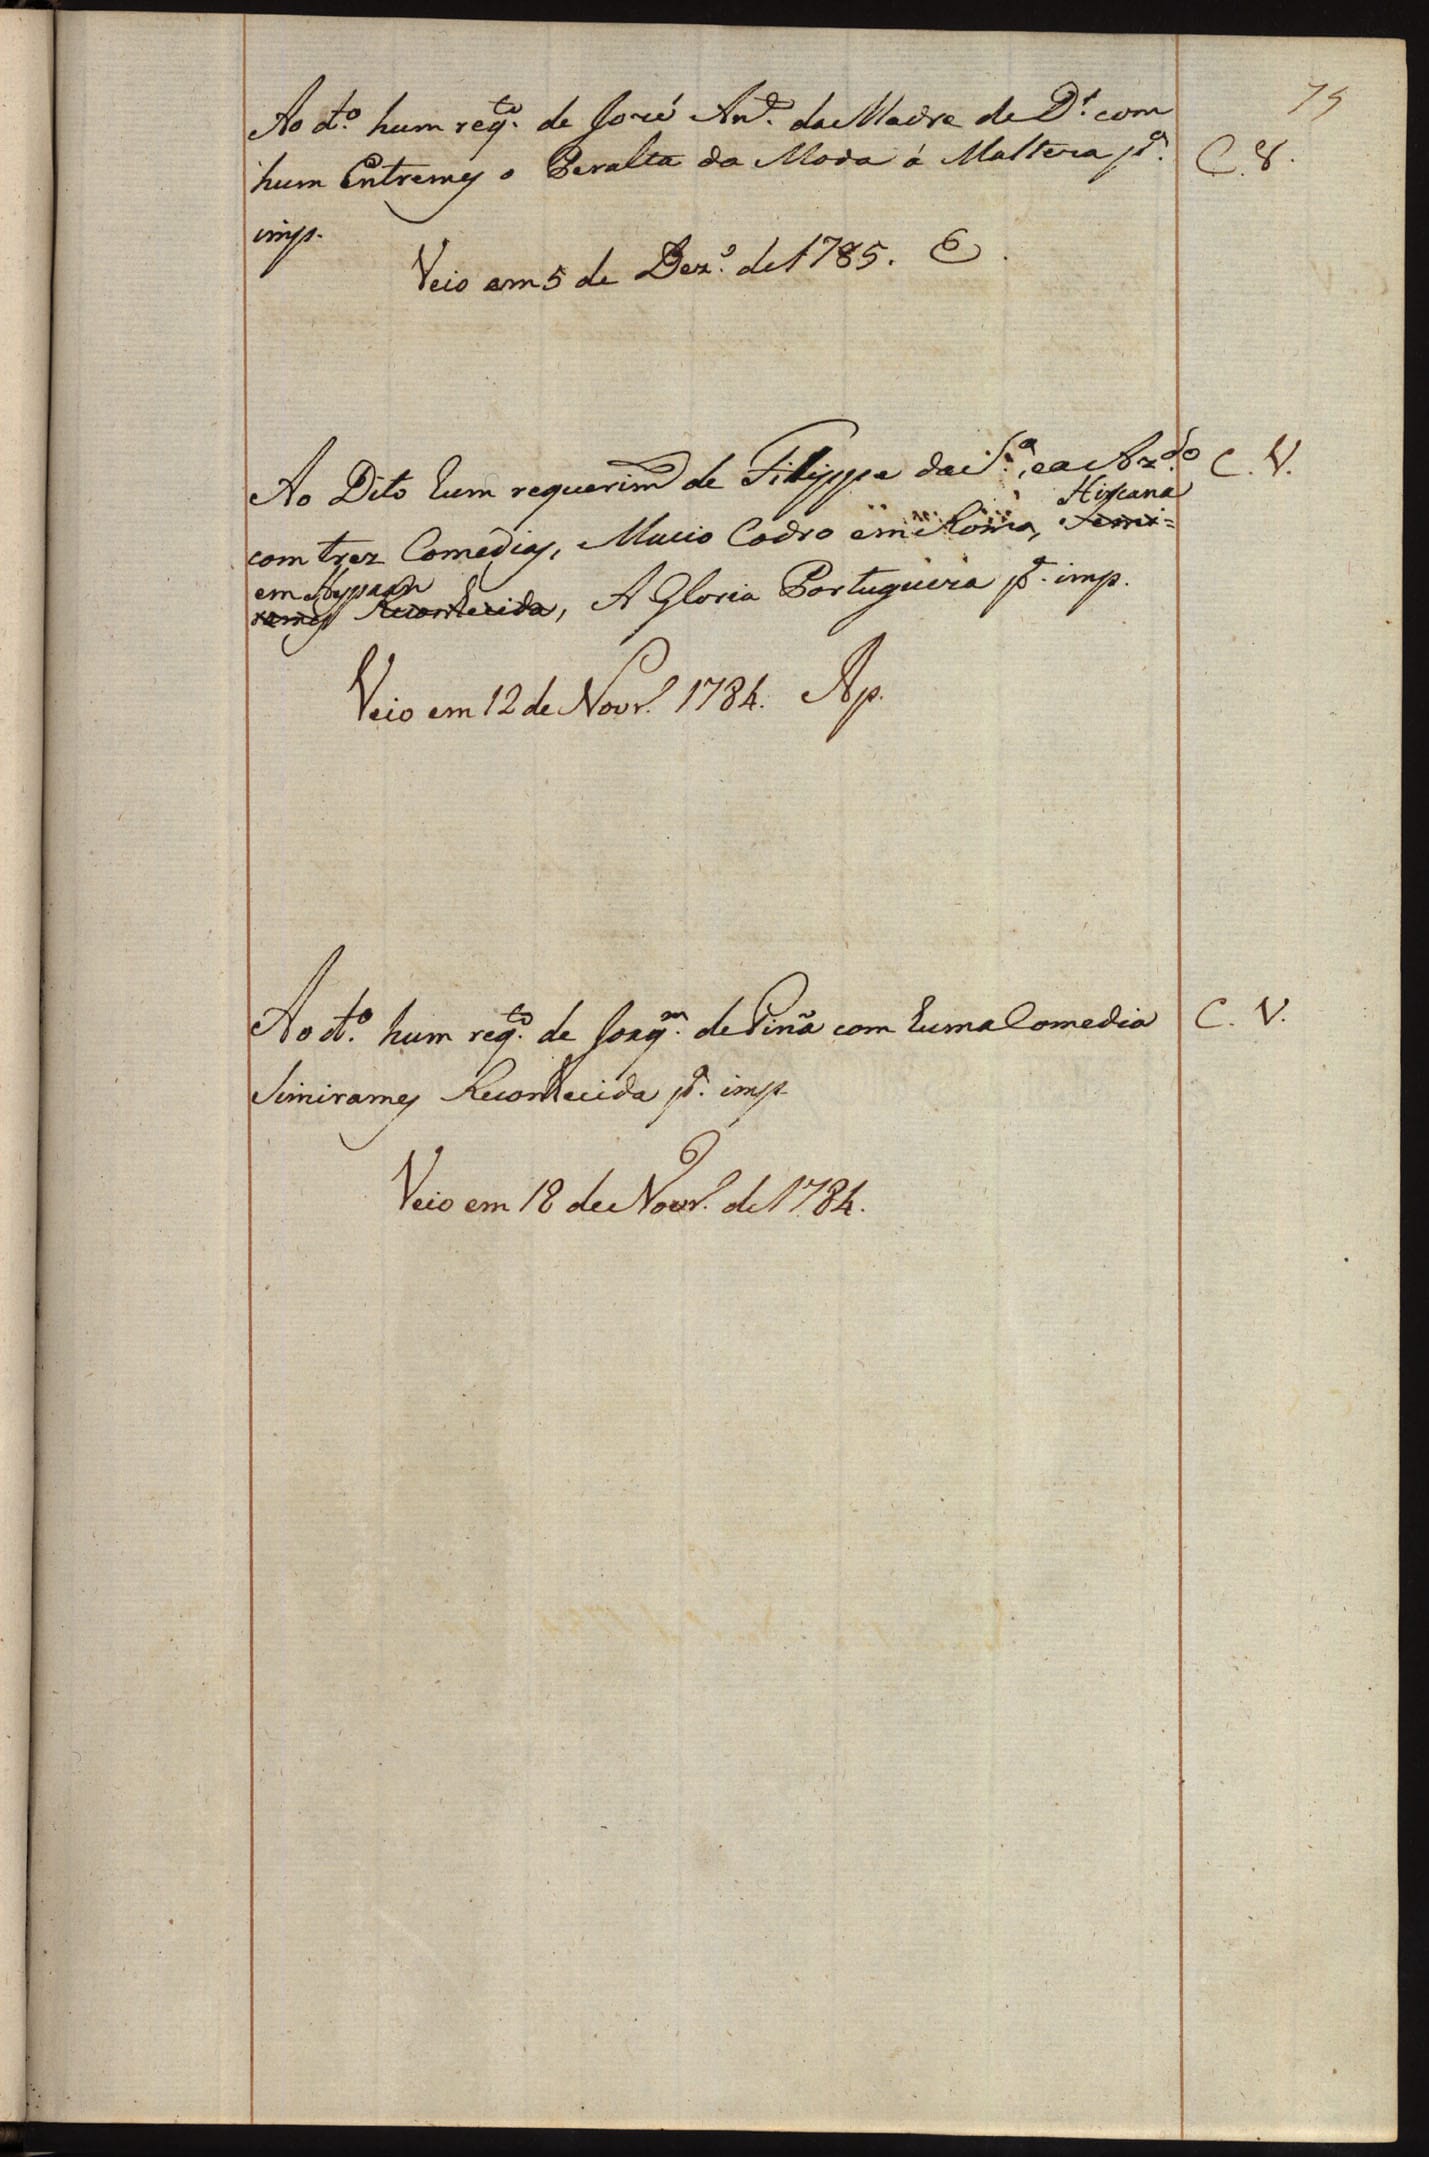 75
Ao dt.º hum reqto. de José Anto. da Madre de Ds. com
hum Entremes o Peralta da Moda á Malteza pa. C. V.
imp.
Veio em 5 de Dezo. de 1785. E.
Ao Dito hum requerimto de Filippe da Sa., e Azdo. C. V.
com trez Comedias, Mucio Codro em Roma, Semi= Hircana
rames Reconhecida, em Hyspaan A Gloria Portugueza pa. imp.
Veio em 12 de Novr. 1784. Ap.
Ao dt.º hum reqto. de Joaqm. de Pinã com huma Comedia C. V.
Simirames Reconhecida pa. imp.
Veio em 18 de Novr. de 1784.